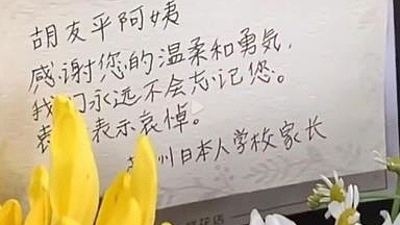 胡友平阿姨
感谢您的温柔和勇気,
我们永远不会忘记您。
表示哀悼。
州日本人学校家长